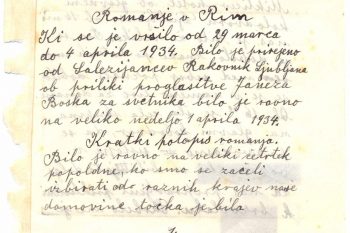 Romanje v Rim
Ki se je vršilo od 29 marca
do 4 aprila 1934. Bilo je prirejeno
od Salezijancev Rakovnik Ljubljana
ob priliki proglasitve Janeza
Boska za svetnika bilo je ravno
na veliko nedeljo 1 aprila 1934.
Kratki potopis romanja.
Bilo je ravno na veliki četrtek
popoldne, ko smo se začeli
vzbirati od raznih krajev naše
domovine točka je bila